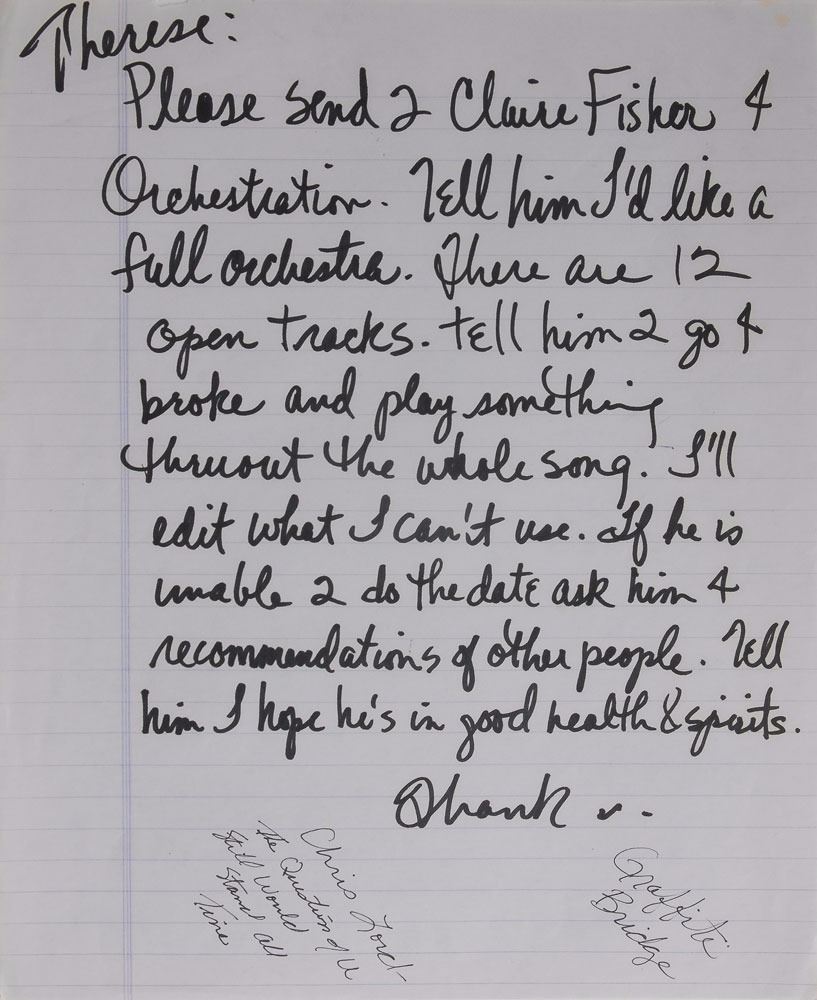 Therese:
Please send 2 Claire Fisher 4
Orchestration. Tell him I'd like a
full orchestra. There are 12
open tracks. tell him 2 go 4
broke and play something
thruout the whole song. I'll
edit what I can't use. If he is
unable 2 do the date ask him 4
recommendations of other people. Tell
him I hope he's in good health & spirits.
Thank
Chris Lord-
The Question of U
Still Would
Stand All
Time
Graffiti
Bridge